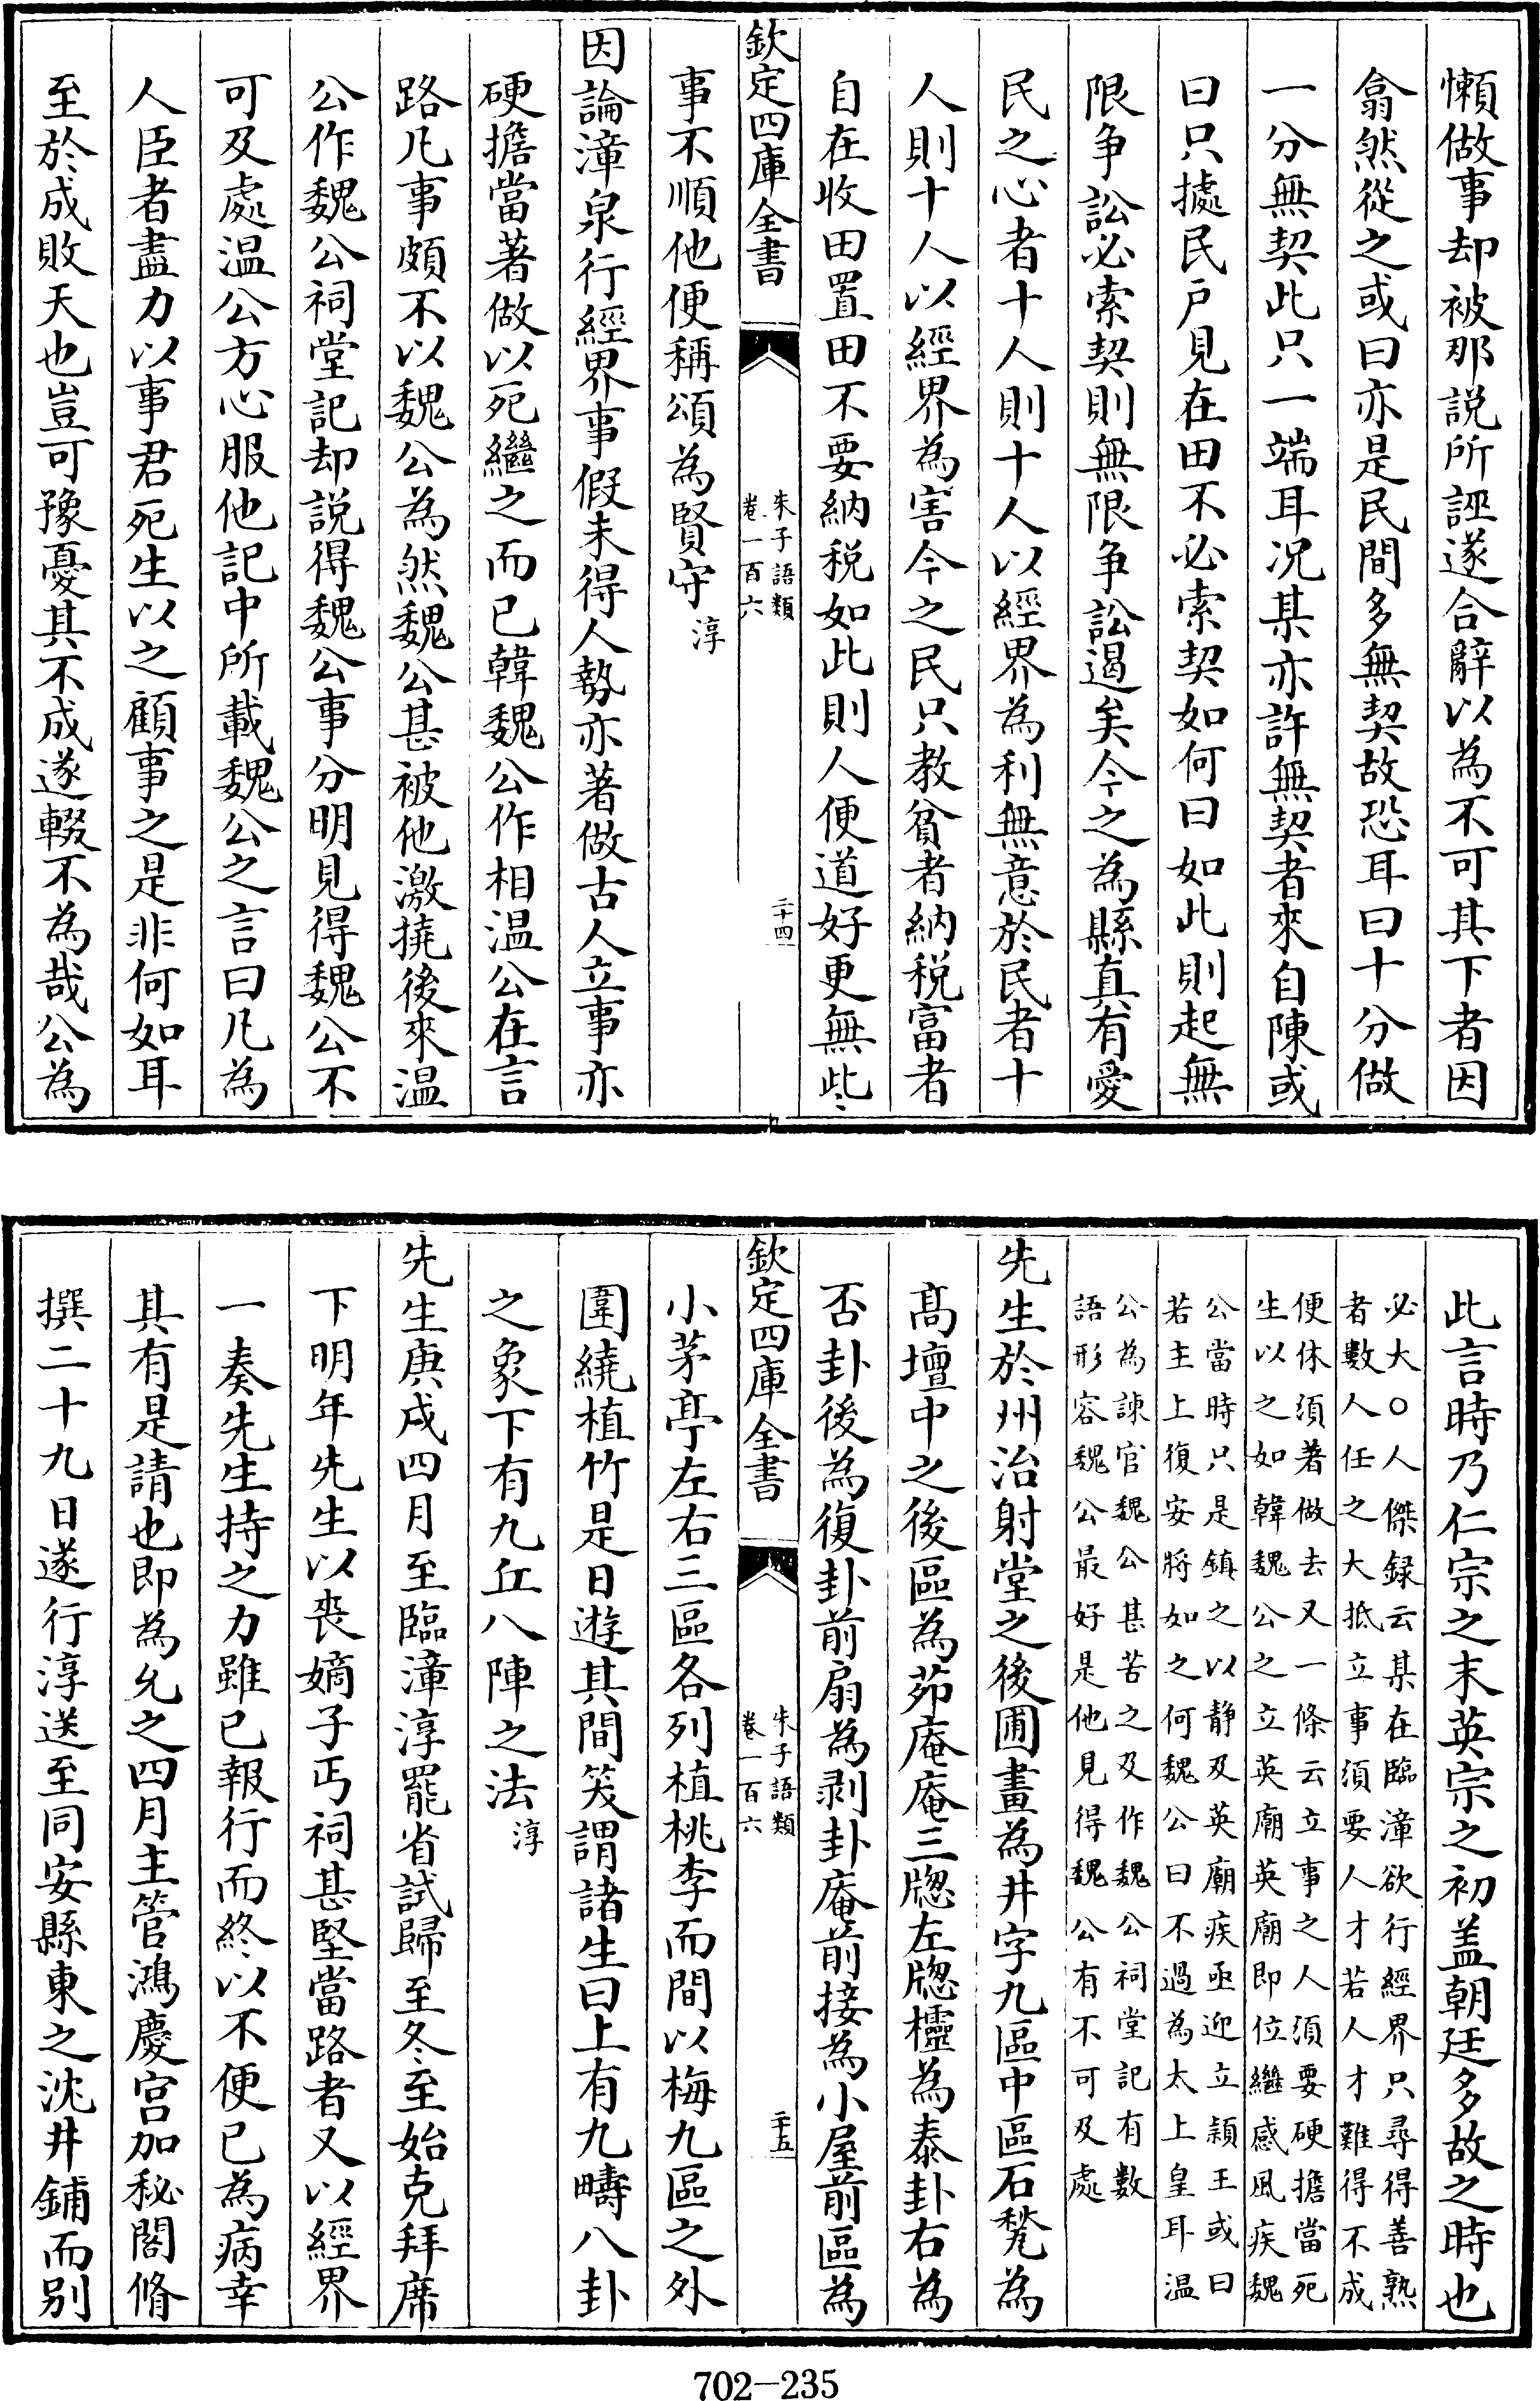 懶做事却被那説所誣遂合辭以為不可其下者因
翕然從之或曰亦是民間多無契故恐耳曰十分做
一分無契此只一端耳况某亦許無契者來自陳或
曰只據民戸見在田不必索契如何曰如此則起無
限争訟必索契則無限争訟遏矣今之為縣真有愛
民之心者十人則十人以經界為利無意於民者十
人則十人以經界為害今之民只教貧者納税富者
自在收田置田不要納税如此則人便道好更無些
欽定四庫全書
朱子語類
卷一百六
二十四
事不順他便稱頌為賢守淳
因論漳泉行經界事假未得人勢亦著做古人立事亦
硬擔當著做以死繼之而已韓魏公作相温公在言
路凡事頗不以魏公為然魏公甚被他激撓後來温
公作魏公祠堂記却説得魏公事分明見得魏公不
可及處温公方心服他記中所載魏公之言曰凡為
人臣者盡力以事君死生以之顧事之是非何如耳
至於成敗天也豈可豫憂其不成遂輟不為哉公為
此言時乃仁宗之末英宗之初盖朝廷多故之時也
必大○人傑録云某在臨漳欲行經界只尋得善熟
者數人任之大抵立事須要人才若人才難得不成
便休須著做去又一條云立事之人須要硬擔當死
生以之如韓魏公之立英廟英廟即位繼感風疾魏
公當時只是鎮之以静及英廟疾亟迎立潁王或曰
若主上復安將如之何魏公曰不過為太上皇耳温
公為諫官魏公甚苦之及作魏公祠堂記有數
語形容魏公最好是他見得魏公有不可及處
先生於州治射堂之後圃畫為井字九區中區石甃為
髙壇中之後區為茆庵庵三牕左牕櫺為泰卦右為
否卦後為復卦前扇為剥卦庵前接為小屋前區為
欽定四庫全書
朱子語類
卷一百六
二十五
小茅亭左右三區各列植桃李而間以梅九區之外
圍繞植竹是日遊其間笑謂諸生曰上有九疇八卦
之象下有九丘八陣之法淳
先生庚戌四月至臨漳淳罷省試歸至冬至始克拜席
下明年先生以喪嫡子丐祠甚堅當路者又以經界
一奏先生持之力雖已報行而終以不便已為病幸
其有是請也即為允之四月主管鴻慶宫加秘閣脩
撰二十九日遂行淳送至同安縣東之沈井鋪而别
702-235